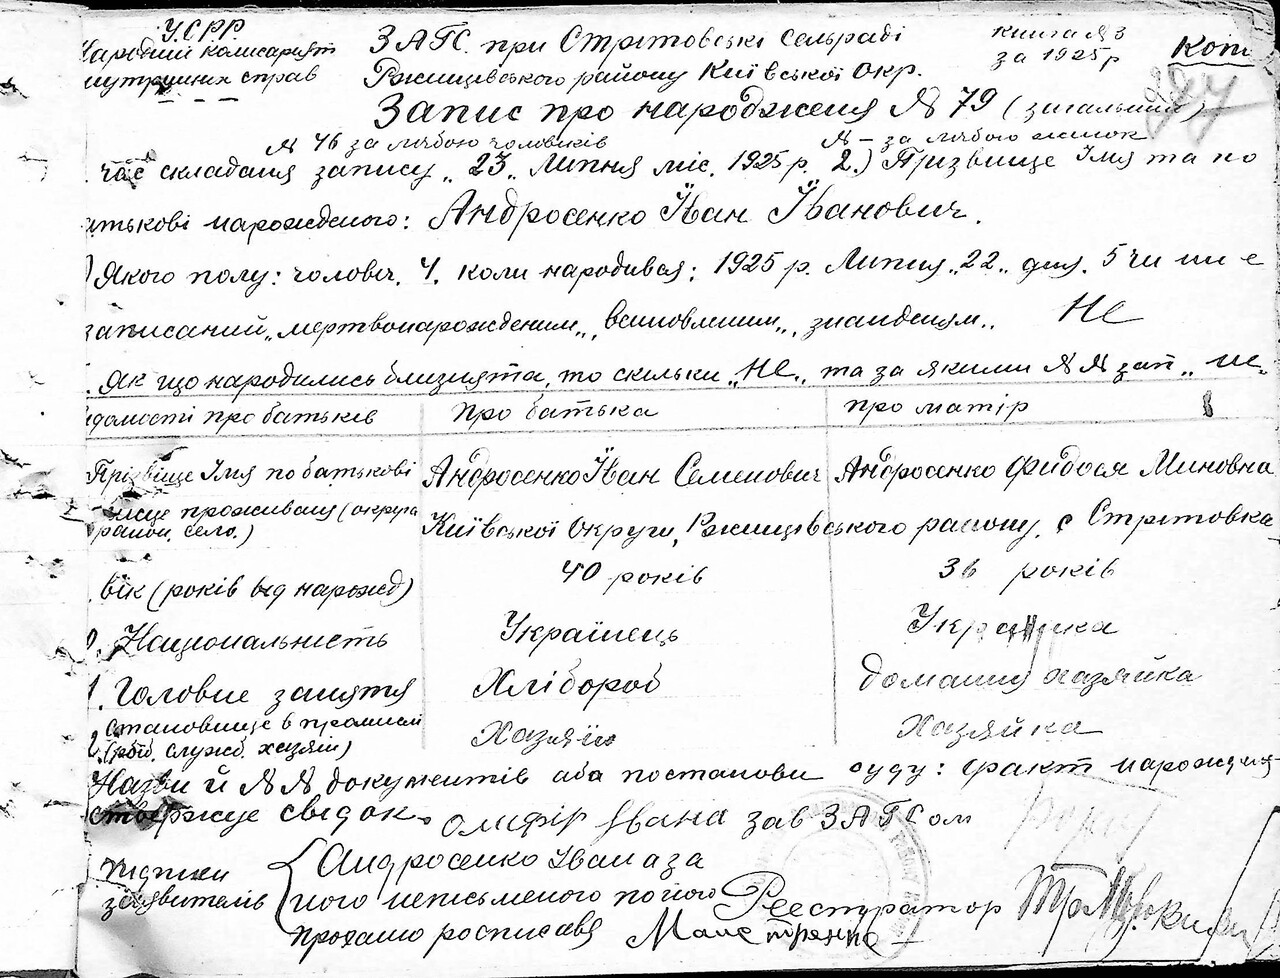 УСРР
Народний комісаріят
внутрішніх справ
ЗАГС. при Стрітовські сельраді
Ржищівського району Київської окр.
книга № 3
за 1925 р
Копі
Запис про народженя № 79 (загальний)
№ 46 за лічбою чоловіків № — за лічбою жінок
час складаня запису „23„ Липня міс. 1925 р. 2.) Прізвище Імя та по
батькові народженого: Андросенко Іван Іванович.
) Якого полу: чолович. 4. коли народився: 1925 р. Липня „22„ дня. 5 чи не є
записаний „мертвонарожденим„, всиновленим„, знайденям„ Не
. Як що народились близнята, то скільки „Не„ та за якими №№ зап „не„
відомості про батьків про батька про матір
Прізвіще Імя по батькові Андросенко Іван Семенович Андросенко Фидося Миновна
місце проживаня (округа Київської округи, Ржищівського району, с Стрітовка
район, село.)
. вік (років від нарожд) 40 років 36 років
. Національність Українець Українка
1. Головне занятя Хлібороб Домашня хазяйка
становище в промислі Хазяїн Хазяйка
2. (роб. служб. хазяїн)
Назви й №№ документів або постанови суду: факт народженя
ствержує свідок. Олифір Івана зав ЗАГСом
Підписи Андросенко Івана за
заявителів його неписьменого по його
проханю росписався
Реєстратор